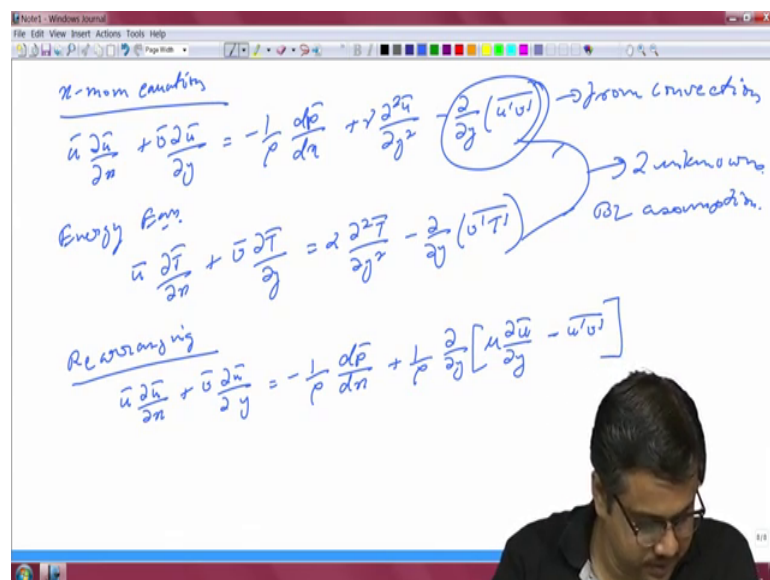 Note1 - Windows Journal
File Edit View Insert Actions Tools Help
Page Width
x-mom equation
ū ∂ū/∂x + v̄ ∂ū/∂y = -1/ρ dp̄/dx + ν ∂²ū/∂y² - ∂/∂y (u'v')‾ → from convection
→ 2 unknowns
BL assumption.
Energy Eqn.
ū ∂T̄/∂x + v̄ ∂T̄/∂y = α ∂²T̄/∂y² - ∂/∂y (v'T')‾
Rearranging
ū ∂ū/∂x + v̄ ∂ū/∂y = -1/ρ dp̄/dx + 1/ρ ∂/∂y [μ ∂ū/∂y - u'v'‾]
8/8